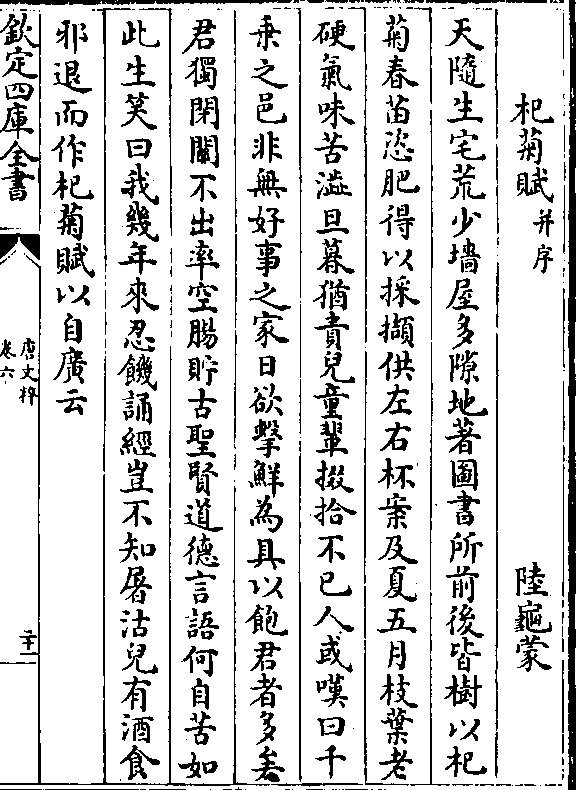 杞菊賦并序　陸龜蒙
天隨生宅荒少墻屋多隙地著圖書所前後皆樹以杞
菊春苗恣肥得以採擷供左右杯案及夏五月枝葉老
硬氣味苦澁旦暮猶責兒童輩掇拾不已人或嘆曰千
乗之邑非無好事之家日欲擊鮮為具以飽君者多矣
君獨閉關不出率空腸貯古聖賢道德言語何自苦如
此生笑曰我幾年來忍饑誦經豈不知屠沽兒有酒食
邪退而作杞菊賦以自廣云
欽定四庫全書
唐文粹
卷六
二十